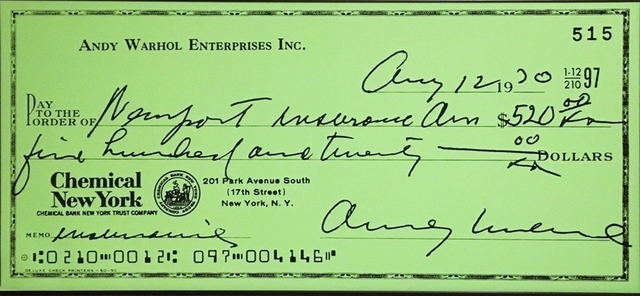 515
ANDY WARHOL ENTERPRISES INC.
Aug 12 1970 1-12/210 97
PAY TO THE ORDER OF Newport Insurance $520 00/xx
five hundred and twenty — 00/xx DOLLARS
Chemical New York
CHEMICAL BANK NEW YORK TRUST COMPANY
201 Park Avenue South
(17th Street)
New York, N. Y.
MEMO insurance Andy Warhol
⑆0210⑉0012⑆ 097⑉004146⑈
DELUXE CHECK PRINTERS